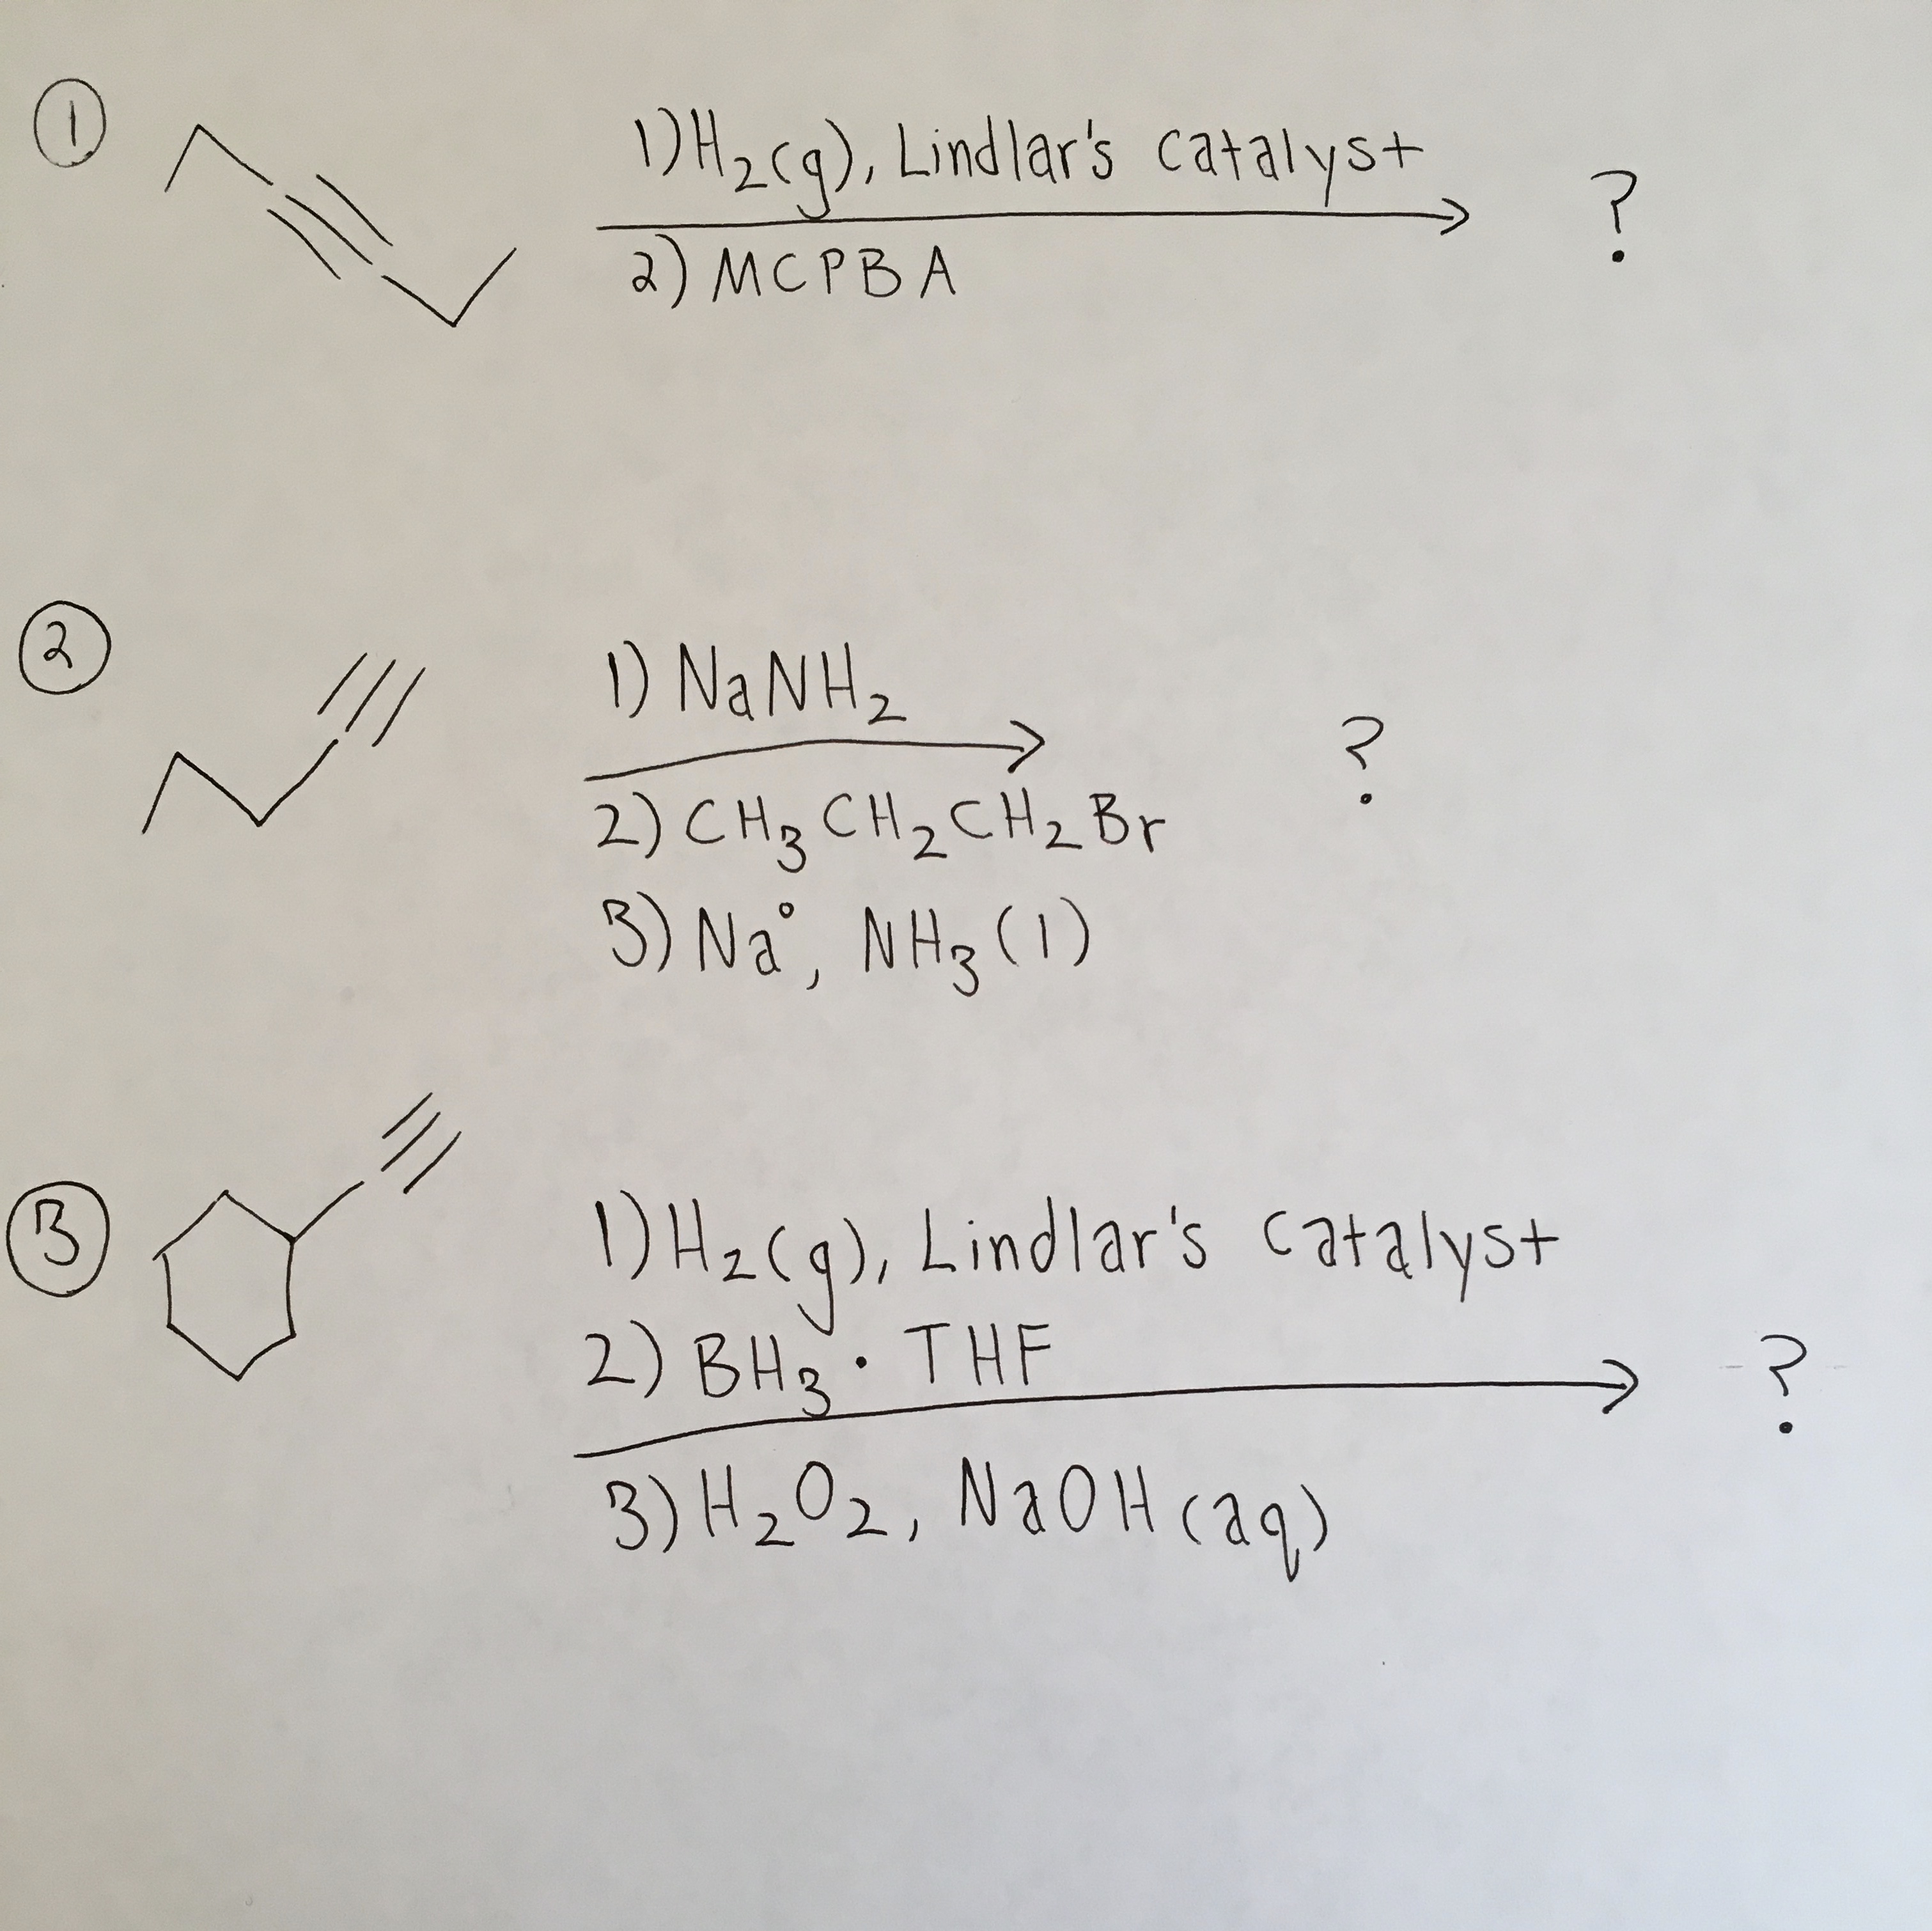 ①
1) H₂(g), Lindlar's catalyst
?
2) MCPBA
②
1) NaNH₂
?
2) CH₃CH₂CH₂Br
3) Na°, NH₃(l)
③
1) H₂(g), Lindlar's catalyst
2) BH₃·THF
?
3) H₂O₂, NaOH(aq)